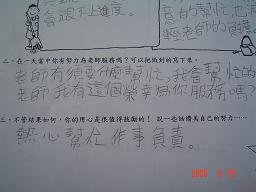 會跟不上進度。
意的幫忙也
輕老師的負擔。
二、在一天當中你有努力為老師服務嗎？可以把做到的寫下來。
老師有須要什麼幫忙,我會幫忙的
老師我有這個榮幸為你服務嗎?
三、不管結果如何，你的用心是很值得鼓勵的！ 說一些話讚美自己的努力……
熱心幫忙作事負責。